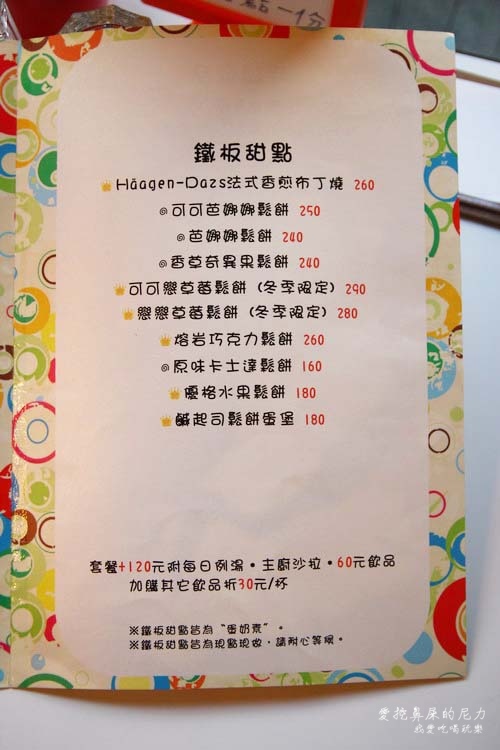 點一分
鐵板甜點
Häagen-Dazs法式香煎布丁燒 260
可可芭娜娜鬆餅 250
芭娜娜鬆餅 240
香草奇異果鬆餅 240
可可戀草莓鬆餅 (冬季限定) 290
戀戀草莓鬆餅 (冬季限定) 280
熔岩巧克力鬆餅 260
原味卡士達鬆餅 160
優格水果鬆餅 180
鹹起司鬆餅蛋堡 180
套餐+120元附每日例湯・主廚沙拉・60元飲品
加購其它飲品折30元/杯
※鐵板甜點皆為“蛋奶素”。
※鐵板甜點皆為現點現做,請耐心等候。
愛挖鼻屎的尼力
我愛吃喝玩樂